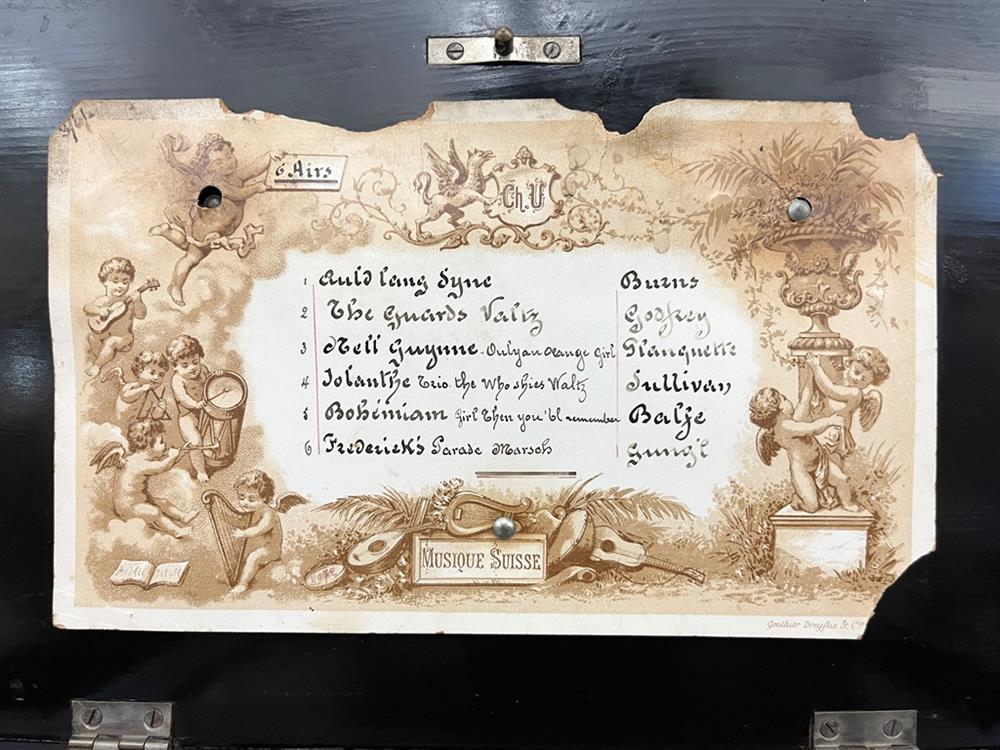 6 Airs
Ch. U
1 Auld lang Syne Burns
2 The Guards Valtz Godfrey
3 Nell Gwynne - Only an Orange Girl Planquette
4 Iolanthe Trio. the Who shies Waltz Sullivan
5 Bohemiam Girl Then you'll remember Balfe
6 Frederick's Parade Marsch Gung'l
MUSIQUE SUISSE
Gonthier Dreyfus & Cie